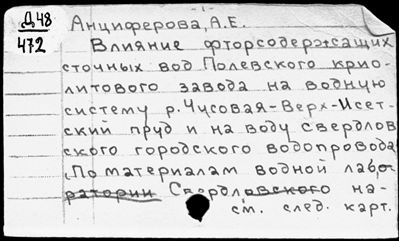 - 1 -
Д 48
472
Анциферова, А.Е.
Влияние фторсодержащих
сточных вод Полевского крио-
литового завода на водную
систему р. Чусовая-Верх-Исет-
ский пруд и на воду Свердлов
ского городского водопровода
По материалам водной лабо-
ратории Свердловского на-
см. след. карт.